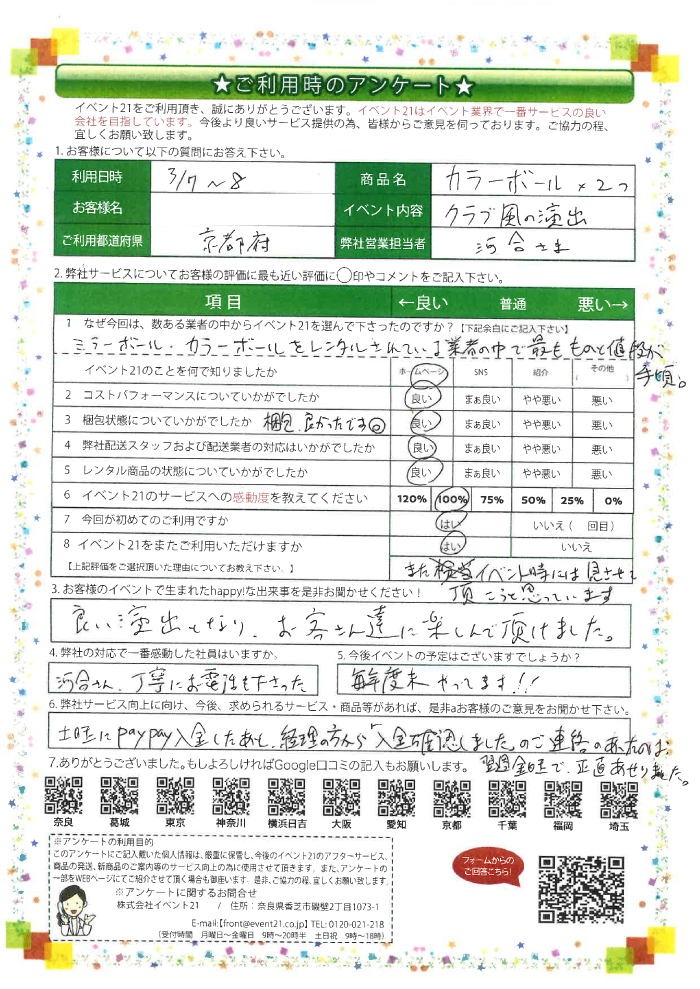 ★ご利用時のアンケート★
イベント21をご利用頂き、誠にありがとうございます。イベント21はイベント業界で一番サービスの良い
会社を目指しています。今後より良いサービス提供の為、皆様からご意見を伺っております。ご協力の程、
宜しくお願い致します。
1.お客様について以下の質問にお答え下さい。
利用日時 3/7～8 商品名 カラーボール×2つ
お客様名 イベント内容 クラブ風の演出
ご利用都道府県 京都府 弊社営業担当者 河合さま
2.弊社サービスについてお客様の評価に最も近い評価に◯印やコメントをご記入下さい。
項目 ←良い 普通 悪い→
1 なぜ今回は、数ある業者の中からイベント21を選んで下さったのですか？【下記余白にご記入下さい】
ミラーボール・カラーボールをレンタルされている業者の中で最もものと値段が
手頃。
イベント21のことを何で知りましたか ホームページ SNS 紹介 その他（ ）
2 コストパフォーマンスについていかがでしたか 良い まぁ良い やや悪い 悪い
3 梱包状態についていかがでしたか 梱包、良かったです◎ 良い まぁ良い やや悪い 悪い
4 弊社配送スタッフおよび配送業者の対応はいかがでしたか 良い まぁ良い やや悪い 悪い
5 レンタル商品の状態についていかがでしたか 良い まぁ良い やや悪い 悪い
6 イベント21のサービスへの感動度を教えてください 120% 100% 75% 50% 25% 0%
7 今回が初めてのご利用ですか はい いいえ（ 回目）
8 イベント21をまたご利用いただけますか はい いいえ
【上記評価をご選択頂いた理由についてお教え下さい。】 また イベント時には見させて
頂こうと思っています
3.お客様のイベントで生まれたhappy!な出来事を是非お聞かせください！
良い演出となり、お客さん達に楽しんで頂けました。
4.弊社の対応で一番感動した社員はいますか。 5.今後イベントの予定はございますでしょうか？
河合さん、丁寧にお電話も下さった 毎年度末やってます!!
6.弊社サービス向上に向け、今後、求められるサービス・商品等があれば、是非aお客様のご意見をお聞かせ下さい。
土曜にpaypay入金したあと、経理の方から「入金確認しました」のご連絡のあったのは、
翌週金曜で、正直あせりました。
7.ありがとうございました。もしよろしければGoogle口コミの記入もお願いします。
奈良 葛城 東京 神奈川 横浜日吉 大阪 愛知 京都 千葉 福岡 埼玉
※アンケートの利用目的
このアンケートにご記入戴いた個人情報は、厳重に保管し、今後のイベント21のアフターサービス、
商品の発送、新商品のご案内等のサービス向上の為に使用させて頂きます。また、アンケートの
一部をWEBページにてご紹介させて頂く場合も御座います。是非、ご協力の程、宜しくお願い致します。
※アンケートに関するお問合せ
株式会社イベント21 / 住所：奈良県香芝市磯壁2丁目1073-1
E-mail:【front@event21.co.jp】 TEL: 0120-021-218
（受付時間 月曜日～金曜日 9時～20時半 土日祝 9時～18時）
フォームからの
ご回答こちら！